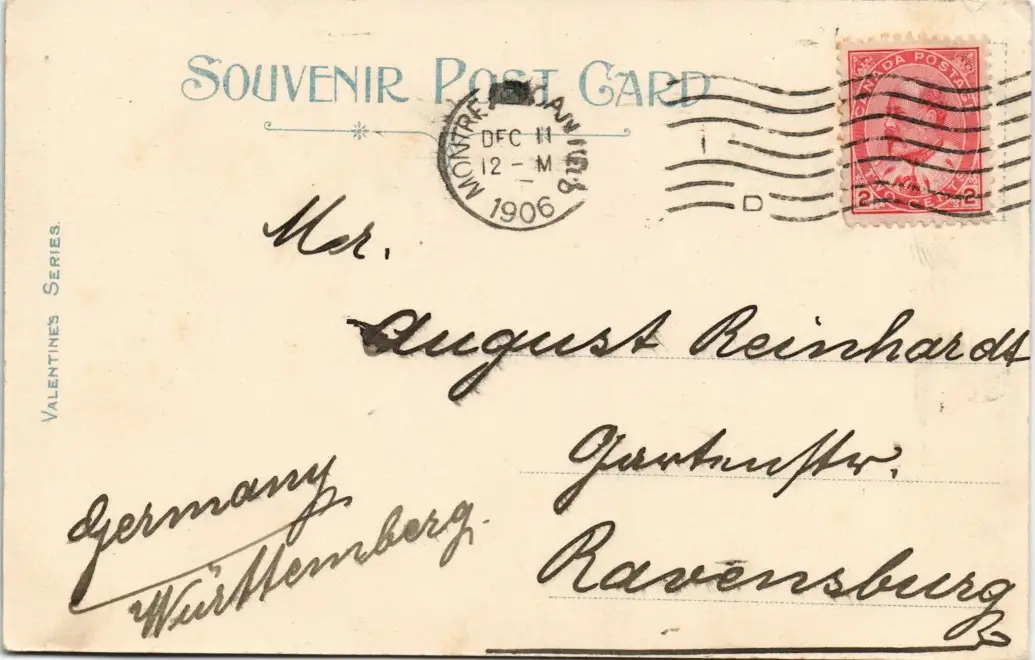 SOUVENIR POST CARD
DEC 11
12 - M
1906
CANADA POSTAGE
2 TWO CENTS 2
D
VALENTINE'S SERIES.
Mr.
August Reinhardt
Gartenstr.
Ravensburg
Germany
Württemberg.